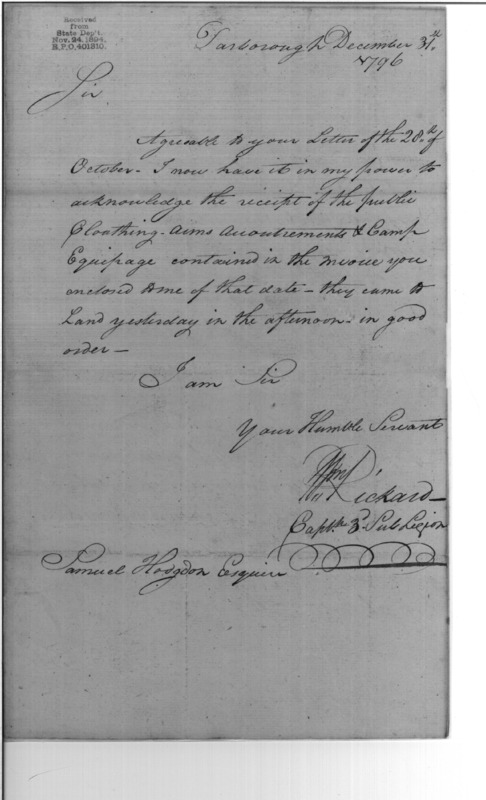 Received
from
State Dep't.
Nov. 24, 1894.
R.P.O. 401810.
Tarborough December 31st
1796
Sir
Agreeable to your Letter of the 28th of
October - I now have it in my power to
acknowledge the receipt of the public
Cloathing - Arms Accoutrements & Camp
Equipage contained in the invoice you
enclosed to me of that date - they came to
Land yesterday in the afternoon - in good
order -
I am Sir
Your Humble Servant
Wm Rickard
Captn 3d Sub Legion
Samuel Hodgdon Esquire